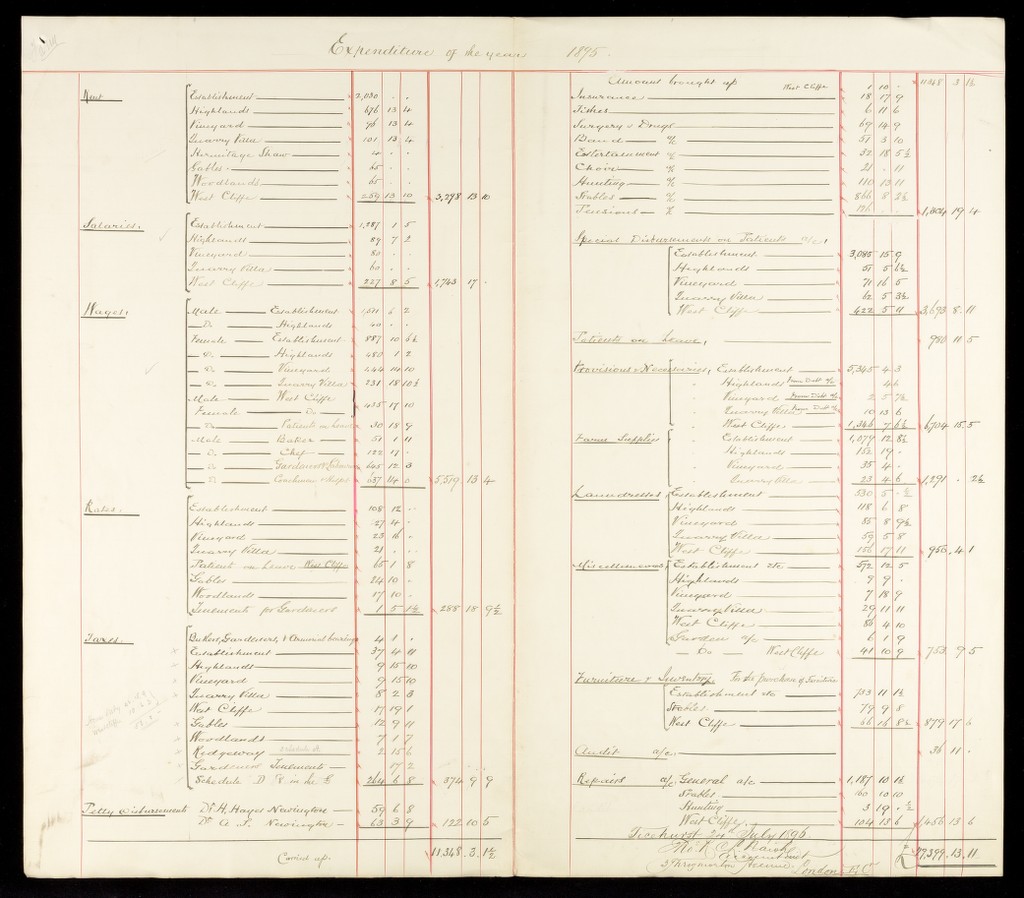 Expenditure of the year 1895.
Rent
Establishment 2,030 . .
Highlands 676 13 4
Vineyard 96 13 4
Quarry Villa 101 13 4
Hermitage Shaw 4 . .
Gables 65 . .
Woodlands 65 . .
West Cliffe 259 13 10 3,298 13 10
Salaries,
Establishment 1,287 1 5
Highlands 89 7 2
Vineyard 80 . .
Quarry Villa 60 . .
West Cliffe 227 8 5 1,743 17 .
Wages,
Male Establishment 1,591 6 2
Do Highlands 40 . .
Female Establishment 887 10 6½
Do Highlands 480 1 2
Do Vineyard 444 14 10
Do Quarry Villa 231 18 10½
Male West Cliffe
Female Do 435 17 10
Do Patients on Leave 30 18 9
Male Baker 51 1 11
D. Chef 122 17 .
Do Gardeners & 645 12 3
Do Coachmen & 14 0 5,519 13 4
Rates,
Establishment 108 12 .
Highlands 27 4 .
Vineyard 23 16 .
Quarry Villa 21 . .
Patients on Leave West Cliffe 65 1 8
Gables 24 10 .
Woodlands 17 10 .
Tenements for Gardeners 1 5 1½ 288 18 9½
Taxes,
Bakers, Gardeners, & Armorial bearings 4 1 .
Establishment 37 4 11
Highlands 9 15 10
Vineyard 9 15 10
Quarry Villa 8 2 3
West Cliffe 17 19 1
Gables 12 9 11
Woodlands 7 1 7
Ridgeway 2 15 6
Gardeners Tenements 17 2
Schedule D 8 in the £ 264 6 8 374 9 9
Petty Disbursements Dr. H. Hayes Newington 59 6 8
Dr. A. S. Newington 63 3 9 122 10 5
Carried up. 11,348 . 3 . 1½
Amount brought up 11,348 3 1½
Insurance West Cliffe 1 10 .
Fishes 18 17 9
Surgery & Drugs 6 11 6
Band a/c 69 14 9
Entertainment a/c 51 3 10
Choir a/c 32 18 5½
Hunting a/c 21 . 11
Stables a/c 110 13 11
Pensions a/c 866 8 2½
1,804 19 4
Special Disbursements on Patients a/c,
Establishment 3,085 15 9
Highlands 51 5 6½
Vineyard 71 16 5
Quarry Villa 62 5 3½
West Cliffe 422 5 11 3,693 8 11
Patients on Leave, 980 11 5
Provisions & Necessaries, Establishment 5,345 4 3
Highlands from Debt a/c 4 6
Vineyard from Debt a/c 2 5 7½
Quarry Villa from Debt a/c 10 13 6
West Cliffe 1,346 7 6½ 6,704 15 5
Farm Supplies Establishment 1,079 12 8½
Highlands 152 19 .
Vineyard 35 4 .
Quarry Villa 23 4 6 1,291 . 2½
Laundresses Establishment 530 5 ½
Highlands 118 6 8
Vineyard 85 8 9½
Quarry Villa 59 5 8
West Cliffe 156 17 11 950 . 4 1
Miscellaneous Establishment etc 592 12 5
Highlands 9 9 .
Vineyard 7 18 9
Quarry Villa 29 11 11
West Cliffe 86 4 10
Garden a/c 6 1 9
Do West Cliffe 41 10 9 753 9 5
Furniture & Inventory To the purchase of Furniture
Establishment etc 733 11 1½
Stables 79 9 8
West Cliffe 66 16 8½ 879 17 6
Audit a/c. 36 11 .
Repairs a/c General a/c 1,187 10 1½
Stables 160 10 10
Hunting 3 19 . ½
West Cliffe 104 13 6 1,456 13 6
Ticehurst 24th July 1896
Accountant
Throgmorton Avenue, London E.C.
£ 13 . 11